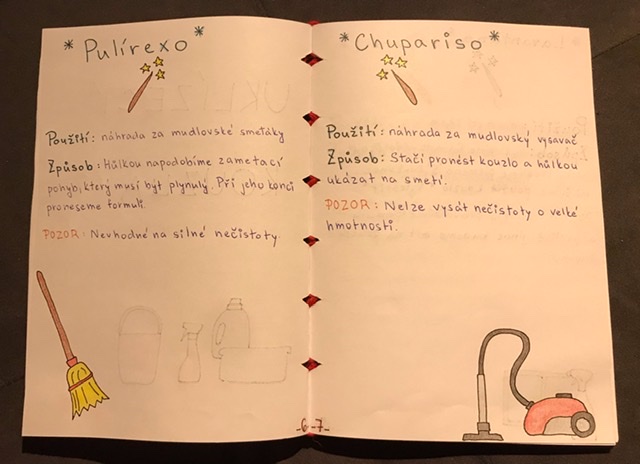 * Pulírexo *
Použití: náhrada za mudlovské smetáky
Způsob: Hůlkou napodobíme zametací
pohyb, který musí být plynulý. Při jeho konci
proneseme formuli.
POZOR: Nevhodné na silné nečistoty
-6
* Chupariso *
Použití: náhrada za mudlovský vysavač
Způsob: Stačí pronést kouzlo a hůlkou
ukázat na smetí.
POZOR: Nelze vysát nečistoty o velké
hmotnosti.
-7-